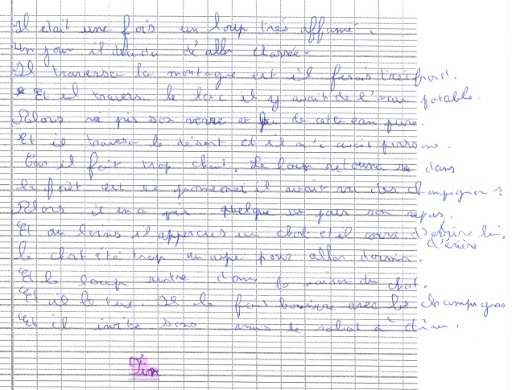 Il était une fois un loup très affamé.
un jour il décida d'aller chassé.
Il traversa la montagne est il fesais très froid.
Et il travers le lac il y avait de l'eau potable.
Alors pris son verre et de cette eau pure.
Et il traversa le désert et il n'i avait personne.
Car il fait trop chaud. Le loup retourna dans
la forêt est se promener il avait vu des champignons
Alors il en a pris quelque un pour son repas.
Et au loin il apperçus un chat et il d'écrire lui.
d'écrire
le chat été trop pour aller dormir.
Et le loup rentre dans la maison du chat.
Et il le tue. Il le fait avec les champignons
Et il invite à dîner.
Fin